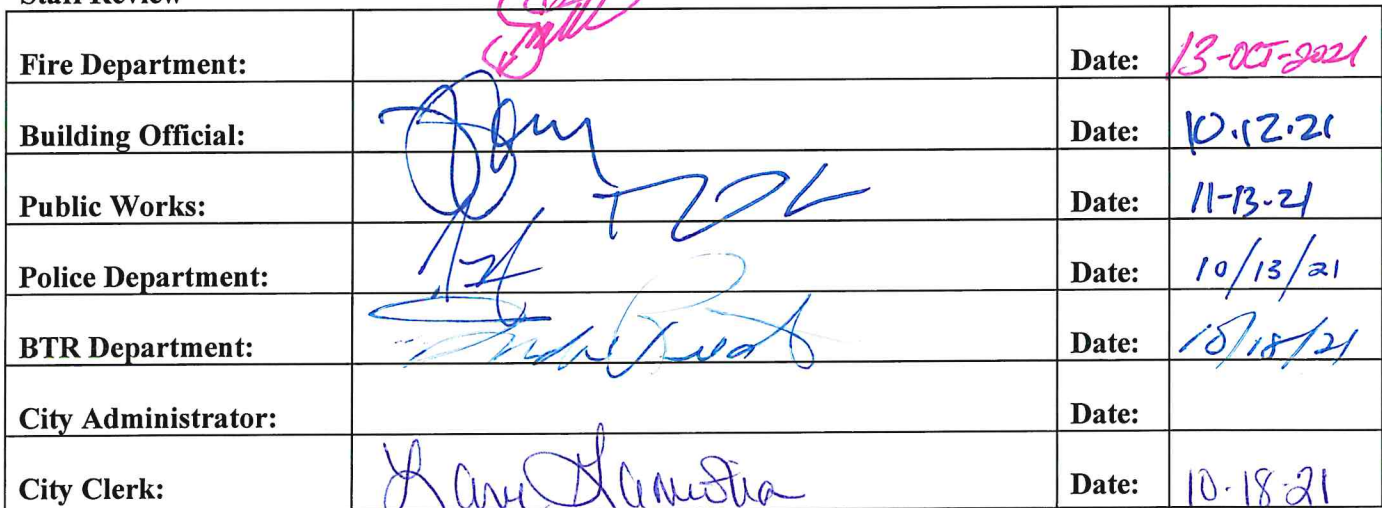 Staff Review
Fire Department: Date: 13-OCT-2021
Building Official: Date: 10.12.21
Public Works: Date: 11-13-21
Police Department: Date: 10/13/21
BTR Department: Date: 10/18/21
City Administrator: Date:
City Clerk: Date: 10-18-21